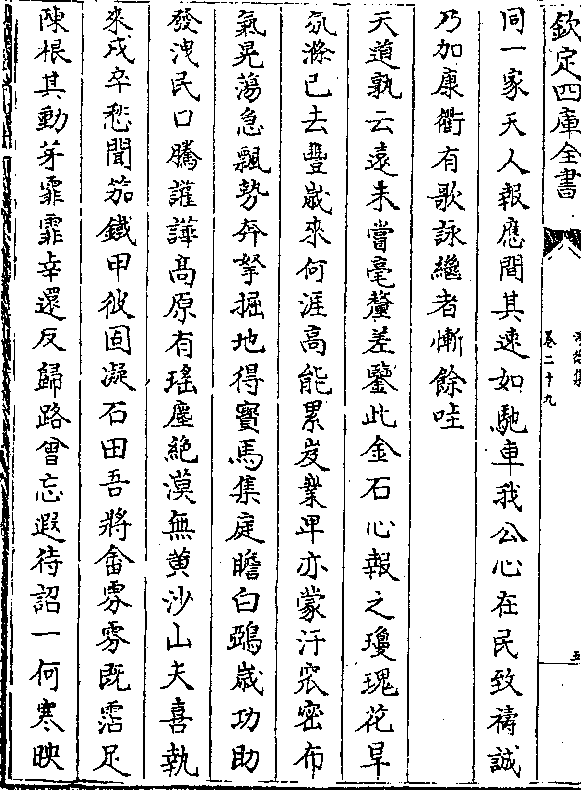 欽定四庫全書
卷二十九
同一家天人報應間其速如馳車我公心在民致禱誠
乃加康衢有歌詠繼者慚餘哇
天道孰云遠未嘗毫釐差鑒此金石心報之瓊瑰花旱
氛滌已去豐歲來何涯高能累岌嶪卑亦蒙汙窊密布
氣晃蕩急飄勢奔拏掘地得寳馬集庭瞻白鵶歲功助
發洩民口騰讙譁髙原有瑤塵絶漠無黄沙山夫喜執
來戍卒愁聞笳鐵甲彼固凝石田吾將畬雰雰既霑足
陳根其動芽霏霏幸還反歸路曾忘遐待詔一何寒映